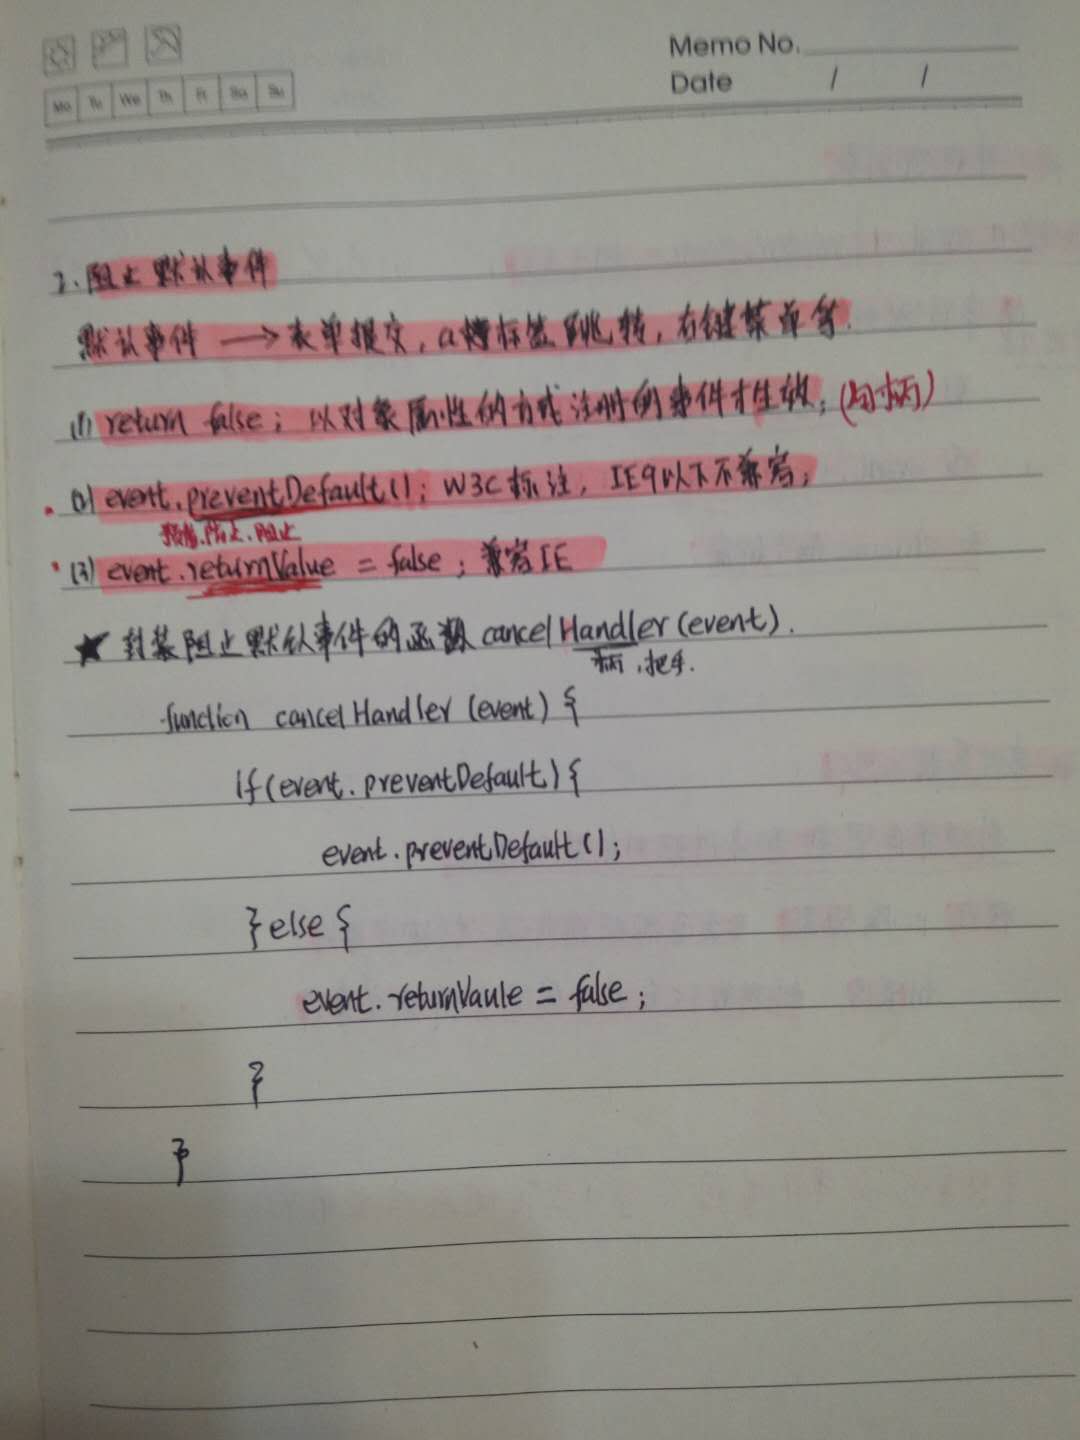 Memo No.
Date / /
Mo Tu We Th Fr Sa Su
2. 阻止默认事件
默认事件 → 表单提交, a标签跳转, 右键菜单等.
(1) return false; 以对象属性的方式注册的事件才生效; (句柄)
(2) event.preventDefault(); W3C标注, IE9以下不兼容;
防止.阻止
(3) event.returnValue = false; 兼容IE
★ 封装阻止默认事件的函数 cancelHandler(event).
柄,把手.
function cancelHandler(event) {
if(event.preventDefault) {
event.preventDefault();
} else {
event.returnVaule = false;
}
}